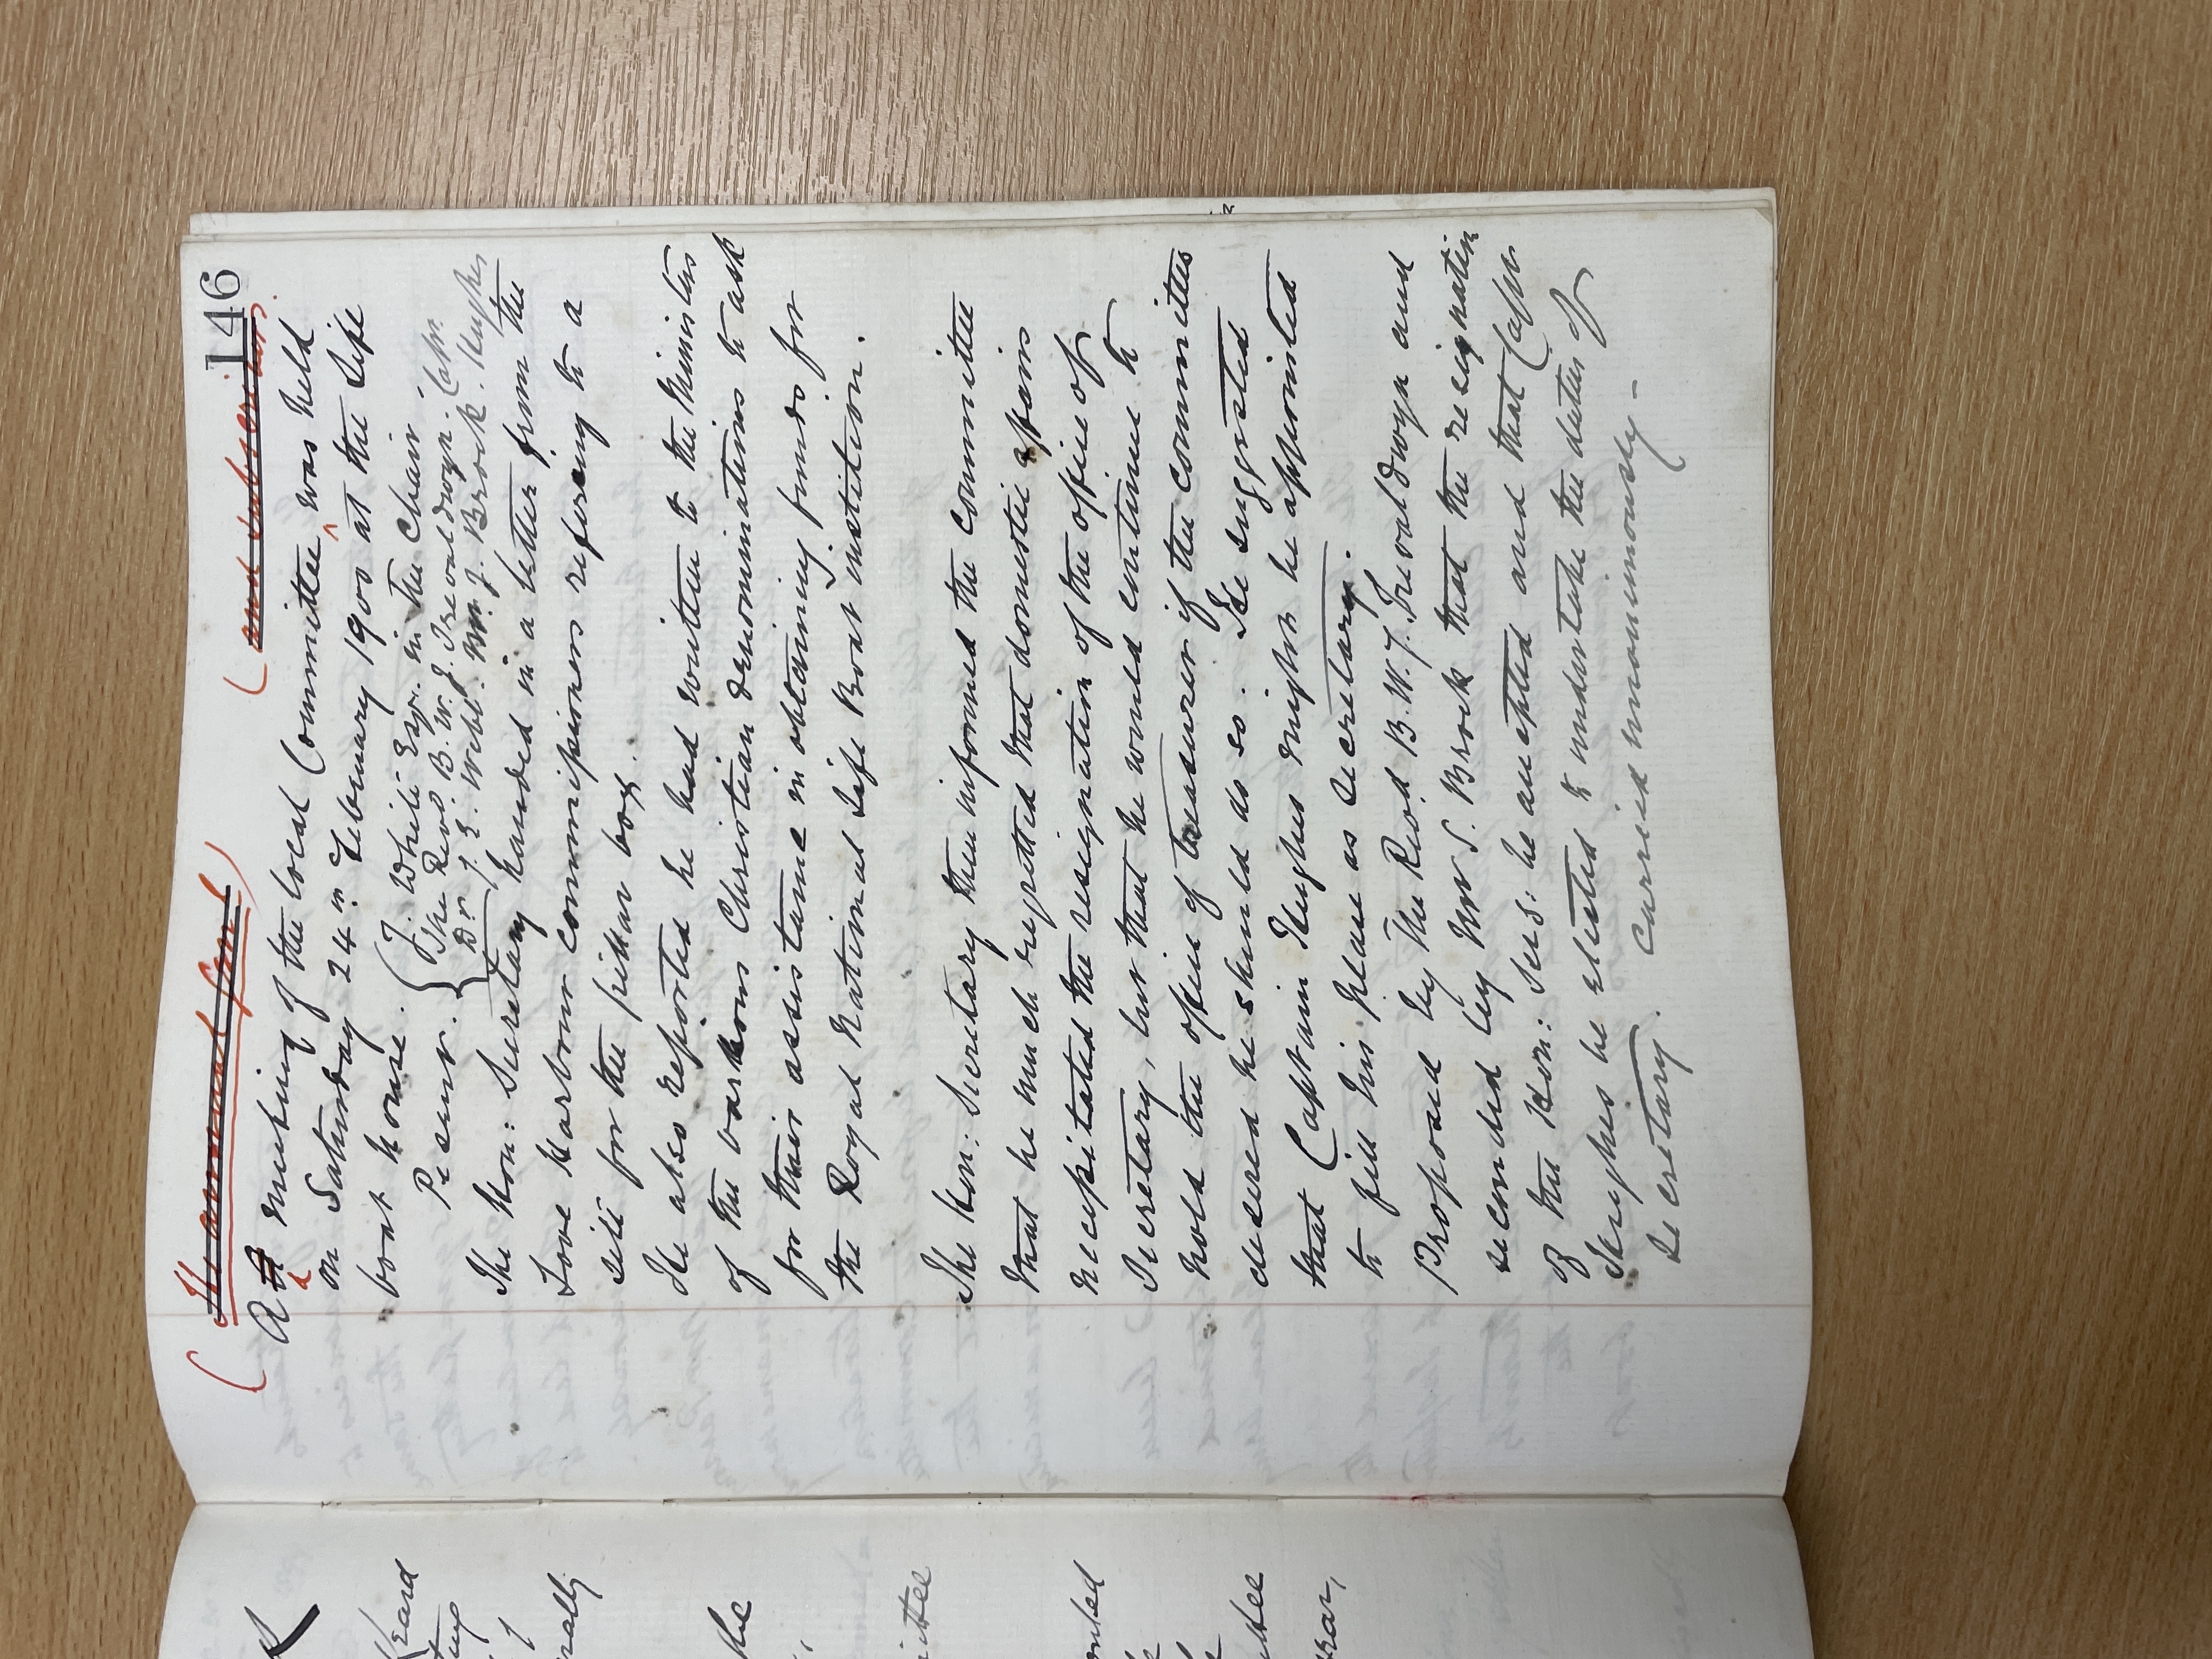 146
A meeting of the local Committee was held
on Saturday 24th February 1900 at the Life
boat house.
Present. J. White Esqr. in the Chair
The Revd B. W. J. Trevaldwyn. Capn.
Dr. T. E. Webb. Mr. J. Brock. Hughes
The Hon: Secretary handed in a letter from the
Looe Harbour Commissioners refering to a
site for the pillar box.
He also reported he had written to the Ministers
of the various Christian denominations to ask
for their assistance in obtaining funds for
the Royal National Life Boat institution.
The Hon: Secretary then informed the committee
that he much regretted that domestic affairs
necessitated the resignation of the office of
Secretary, but that he would continue to
hold the office of treasurer if the committee
desired he should do so. He suggested
that Captain Hughes might be appointed
to fill his place as Secretary.
Proposed by The Revd B. W. J. Trevaldwyn and
seconded by Mr J. Brock that the resignation
of the Hon: Sec: be accepted and that Capn
Hughes be elected to undertake the duties of
Secretary. Carried unanimously-
the